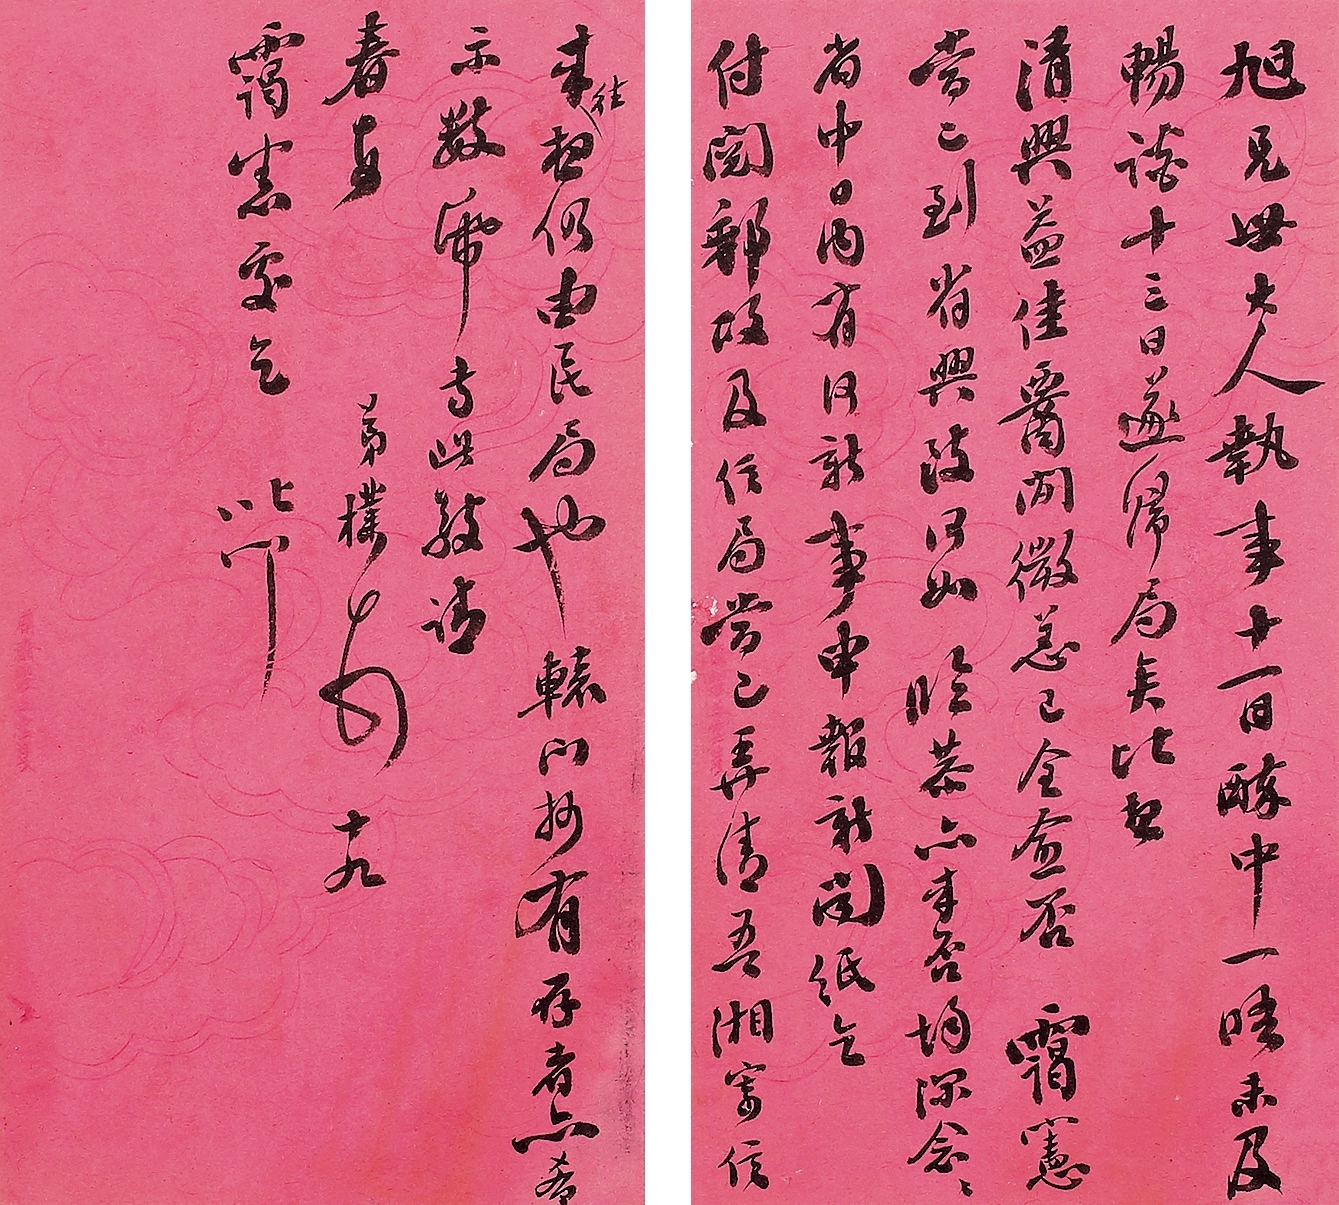 旭兄世大人執事十一日酥中一晤未及
暢談十三日遂歸局矣比想
清興益佳蒼開微恙已全愈否霭憲
嘗已到省興致何如臨恭亦來否均深念念
省中日內有何新事申報新聞紙乞
付閱郵政及信局嘗已弄清吾湘寄信
來往想仍由民局也轅門抄有存者亦希
示數紙专此敬請
春安弟樸頓十九
霭憲處乞叱叩